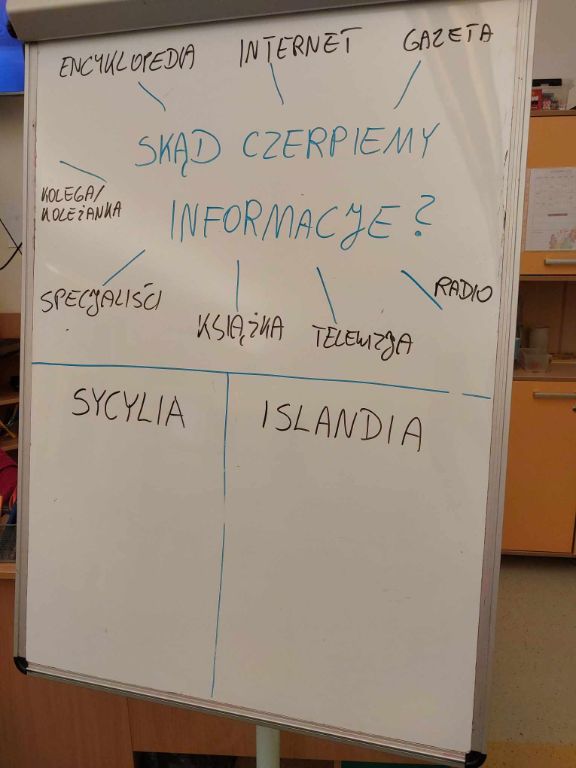 ENCYKLOPEDIA INTERNET GAZETA
SKĄD CZERPIEMY
KOLEGA/
KOLEŻANKA
INFORMACJE?
SPECJALIŚCI KSIĄŻKA TELEWIZJA RADIO
SYCYLIA ISLANDIA